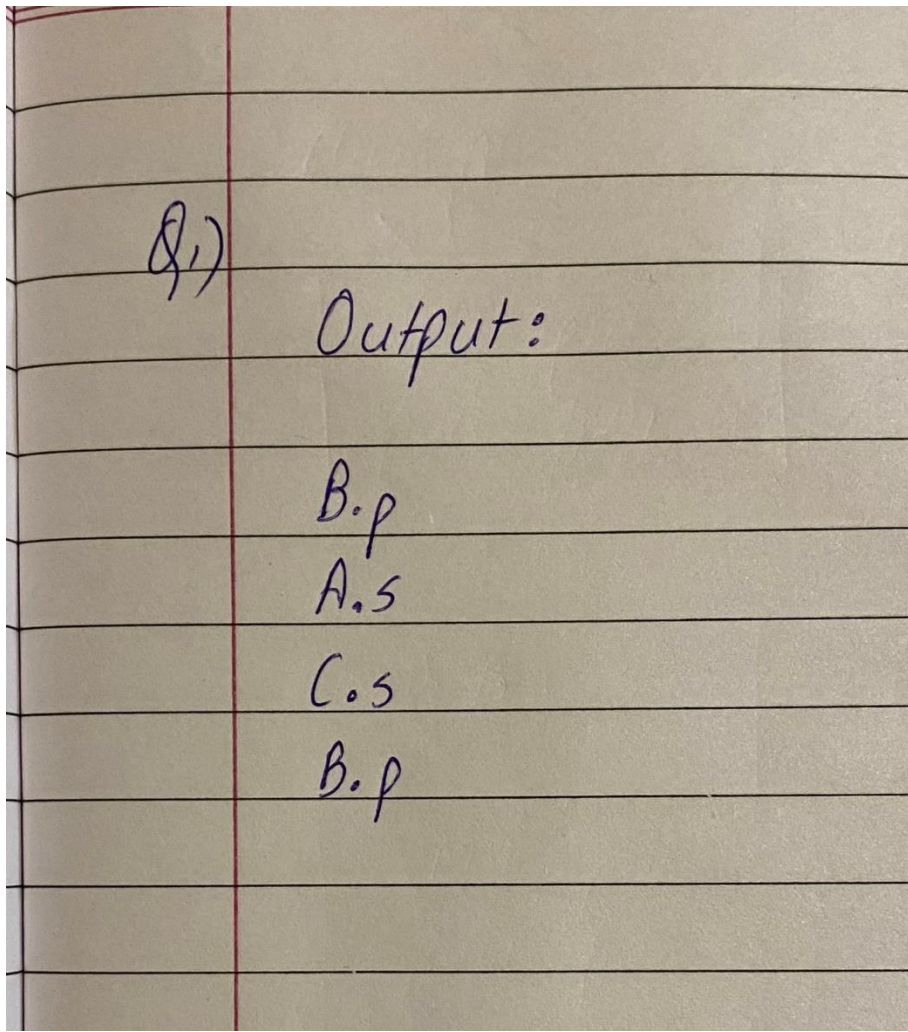 Q1)
Output:
B.p
A.s
C.s
B.p